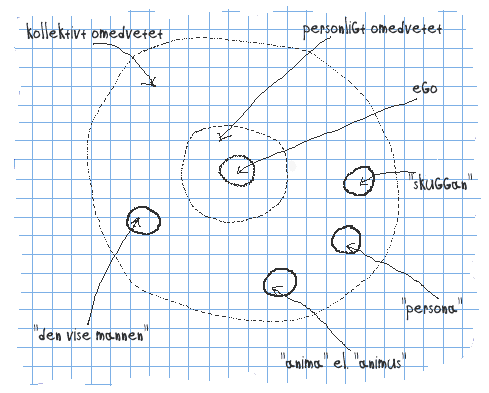 kollektivt omedvetet
personligt omedvetet
ego
"skuggan"
"persona"
"den vise mannen"
"anima" el. "animus"